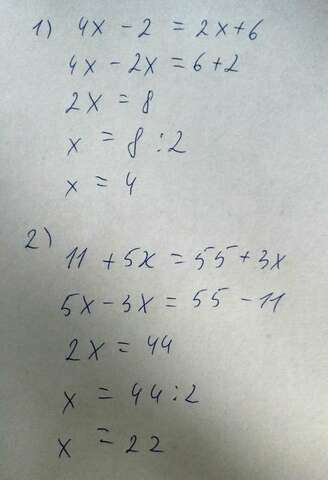 1) 4x - 2 = 2x+6
4x - 2x = 6+2
2x = 8
x = 8 : 2
x = 4
2) 11 + 5x = 55 + 3x
5x - 3x = 55 - 11
2x = 44
x = 44 : 2
x = 22